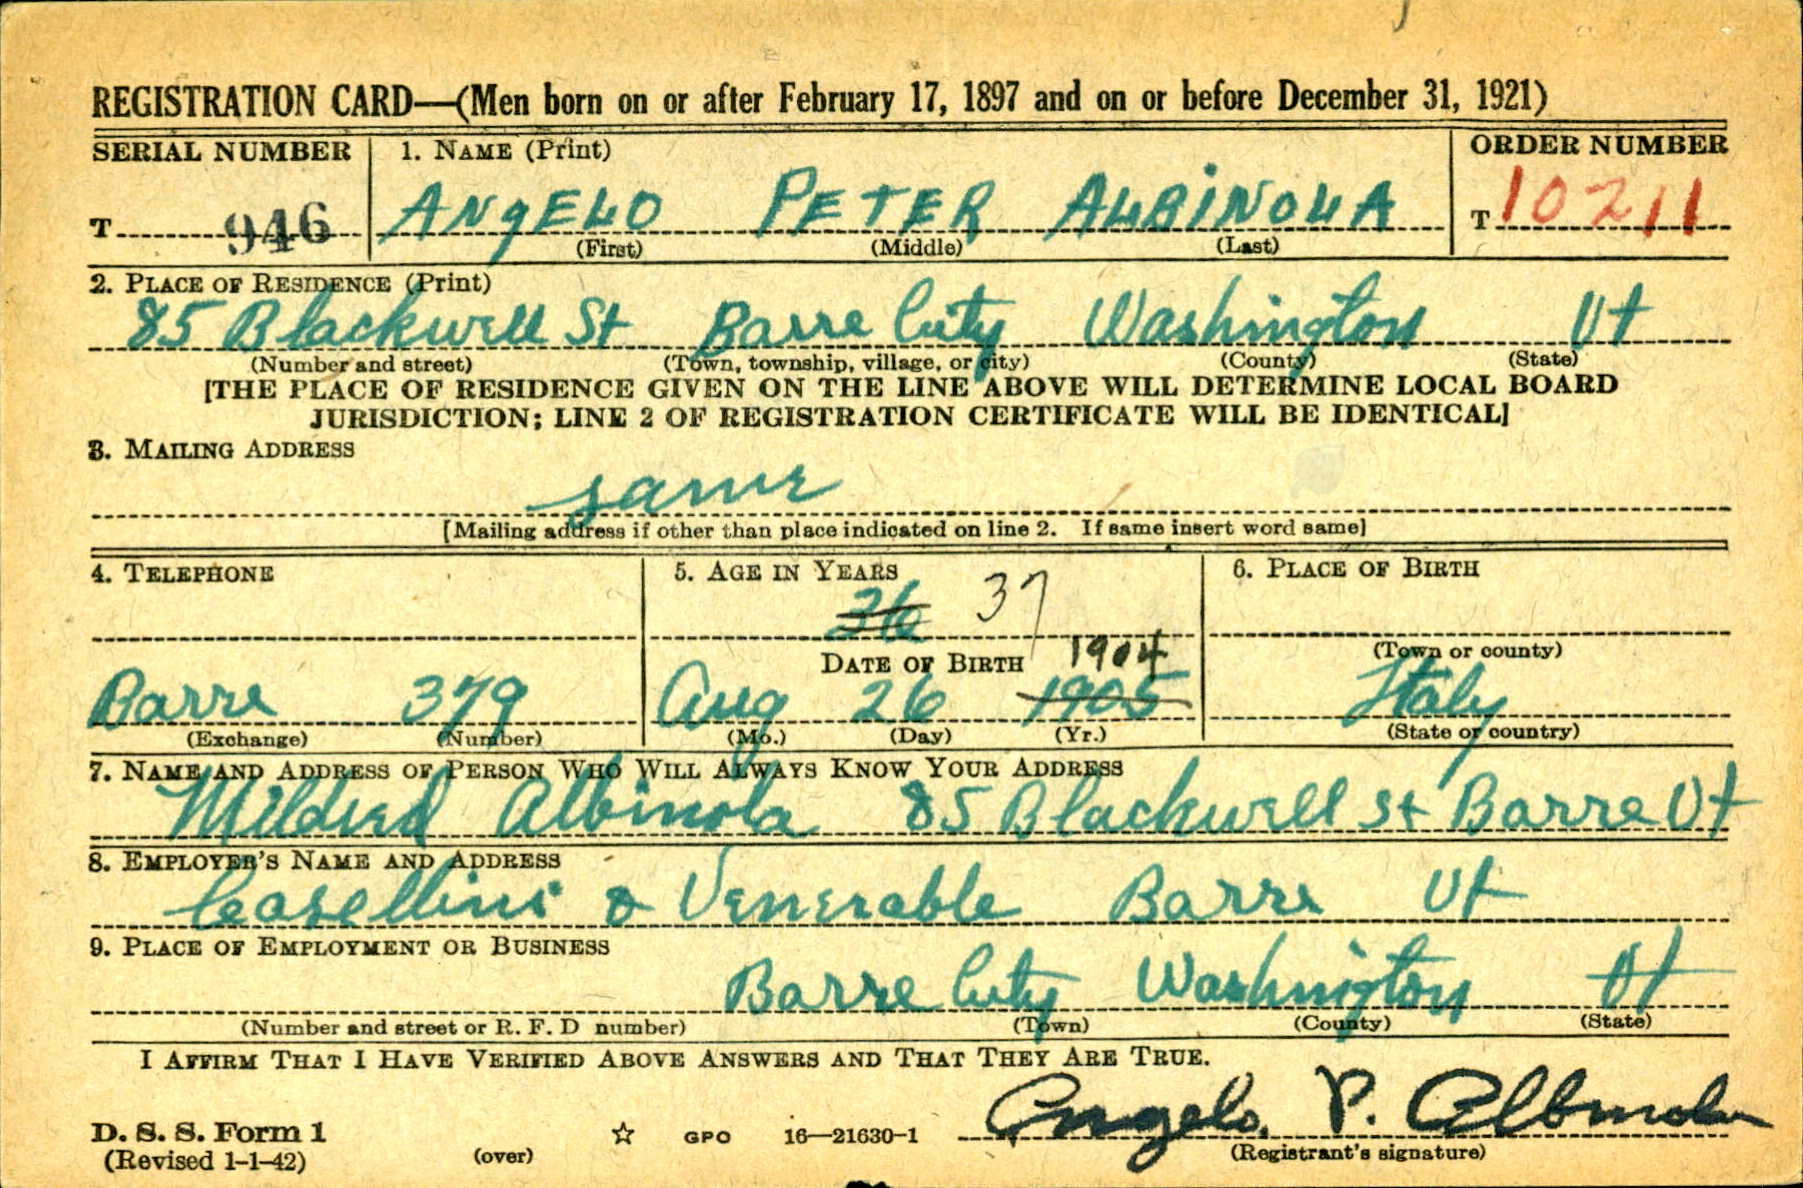 REGISTRATION CARD—(Men born on or after February 17, 1897 and on or before December 31, 1921)
SERIAL NUMBER 1. NAME (Print) ORDER NUMBER
T 946 ANGELO PETER ALBINOLA T 10211
(First) (Middle) (Last)
2. PLACE OF RESIDENCE (Print)
85 Blackwell St Barre City Washington Vt
(Number and street) (Town, township, village, or city) (County) (State)
[THE PLACE OF RESIDENCE GIVEN ON THE LINE ABOVE WILL DETERMINE LOCAL BOARD
JURISDICTION; LINE 2 OF REGISTRATION CERTIFICATE WILL BE IDENTICAL]
3. MAILING ADDRESS
same
[Mailing address if other than place indicated on line 2. If same insert word same]
4. TELEPHONE 5. AGE IN YEARS 6. PLACE OF BIRTH
36 37
(Town or county)
DATE OF BIRTH 1904
Barre 379 Aug 26 1905 Italy
(Exchange) (Number) (Mo.) (Day) (Yr.) (State or country)
7. NAME AND ADDRESS OF PERSON WHO WILL ALWAYS KNOW YOUR ADDRESS
Mildred Albinola 85 Blackwell St Barre Vt
8. EMPLOYER'S NAME AND ADDRESS
Casellini & Venerable Barre Vt
9. PLACE OF EMPLOYMENT OR BUSINESS
Barre City Washington Vt
(Number and street or R. F. D number) (Town) (County) (State)
I AFFIRM THAT I HAVE VERIFIED ABOVE ANSWERS AND THAT THEY ARE TRUE.
Angelo. P. Albinola
D. S. S. Form 1 GPO 16—21630-1
(Revised 1-1-42) (over) (Registrant's signature)